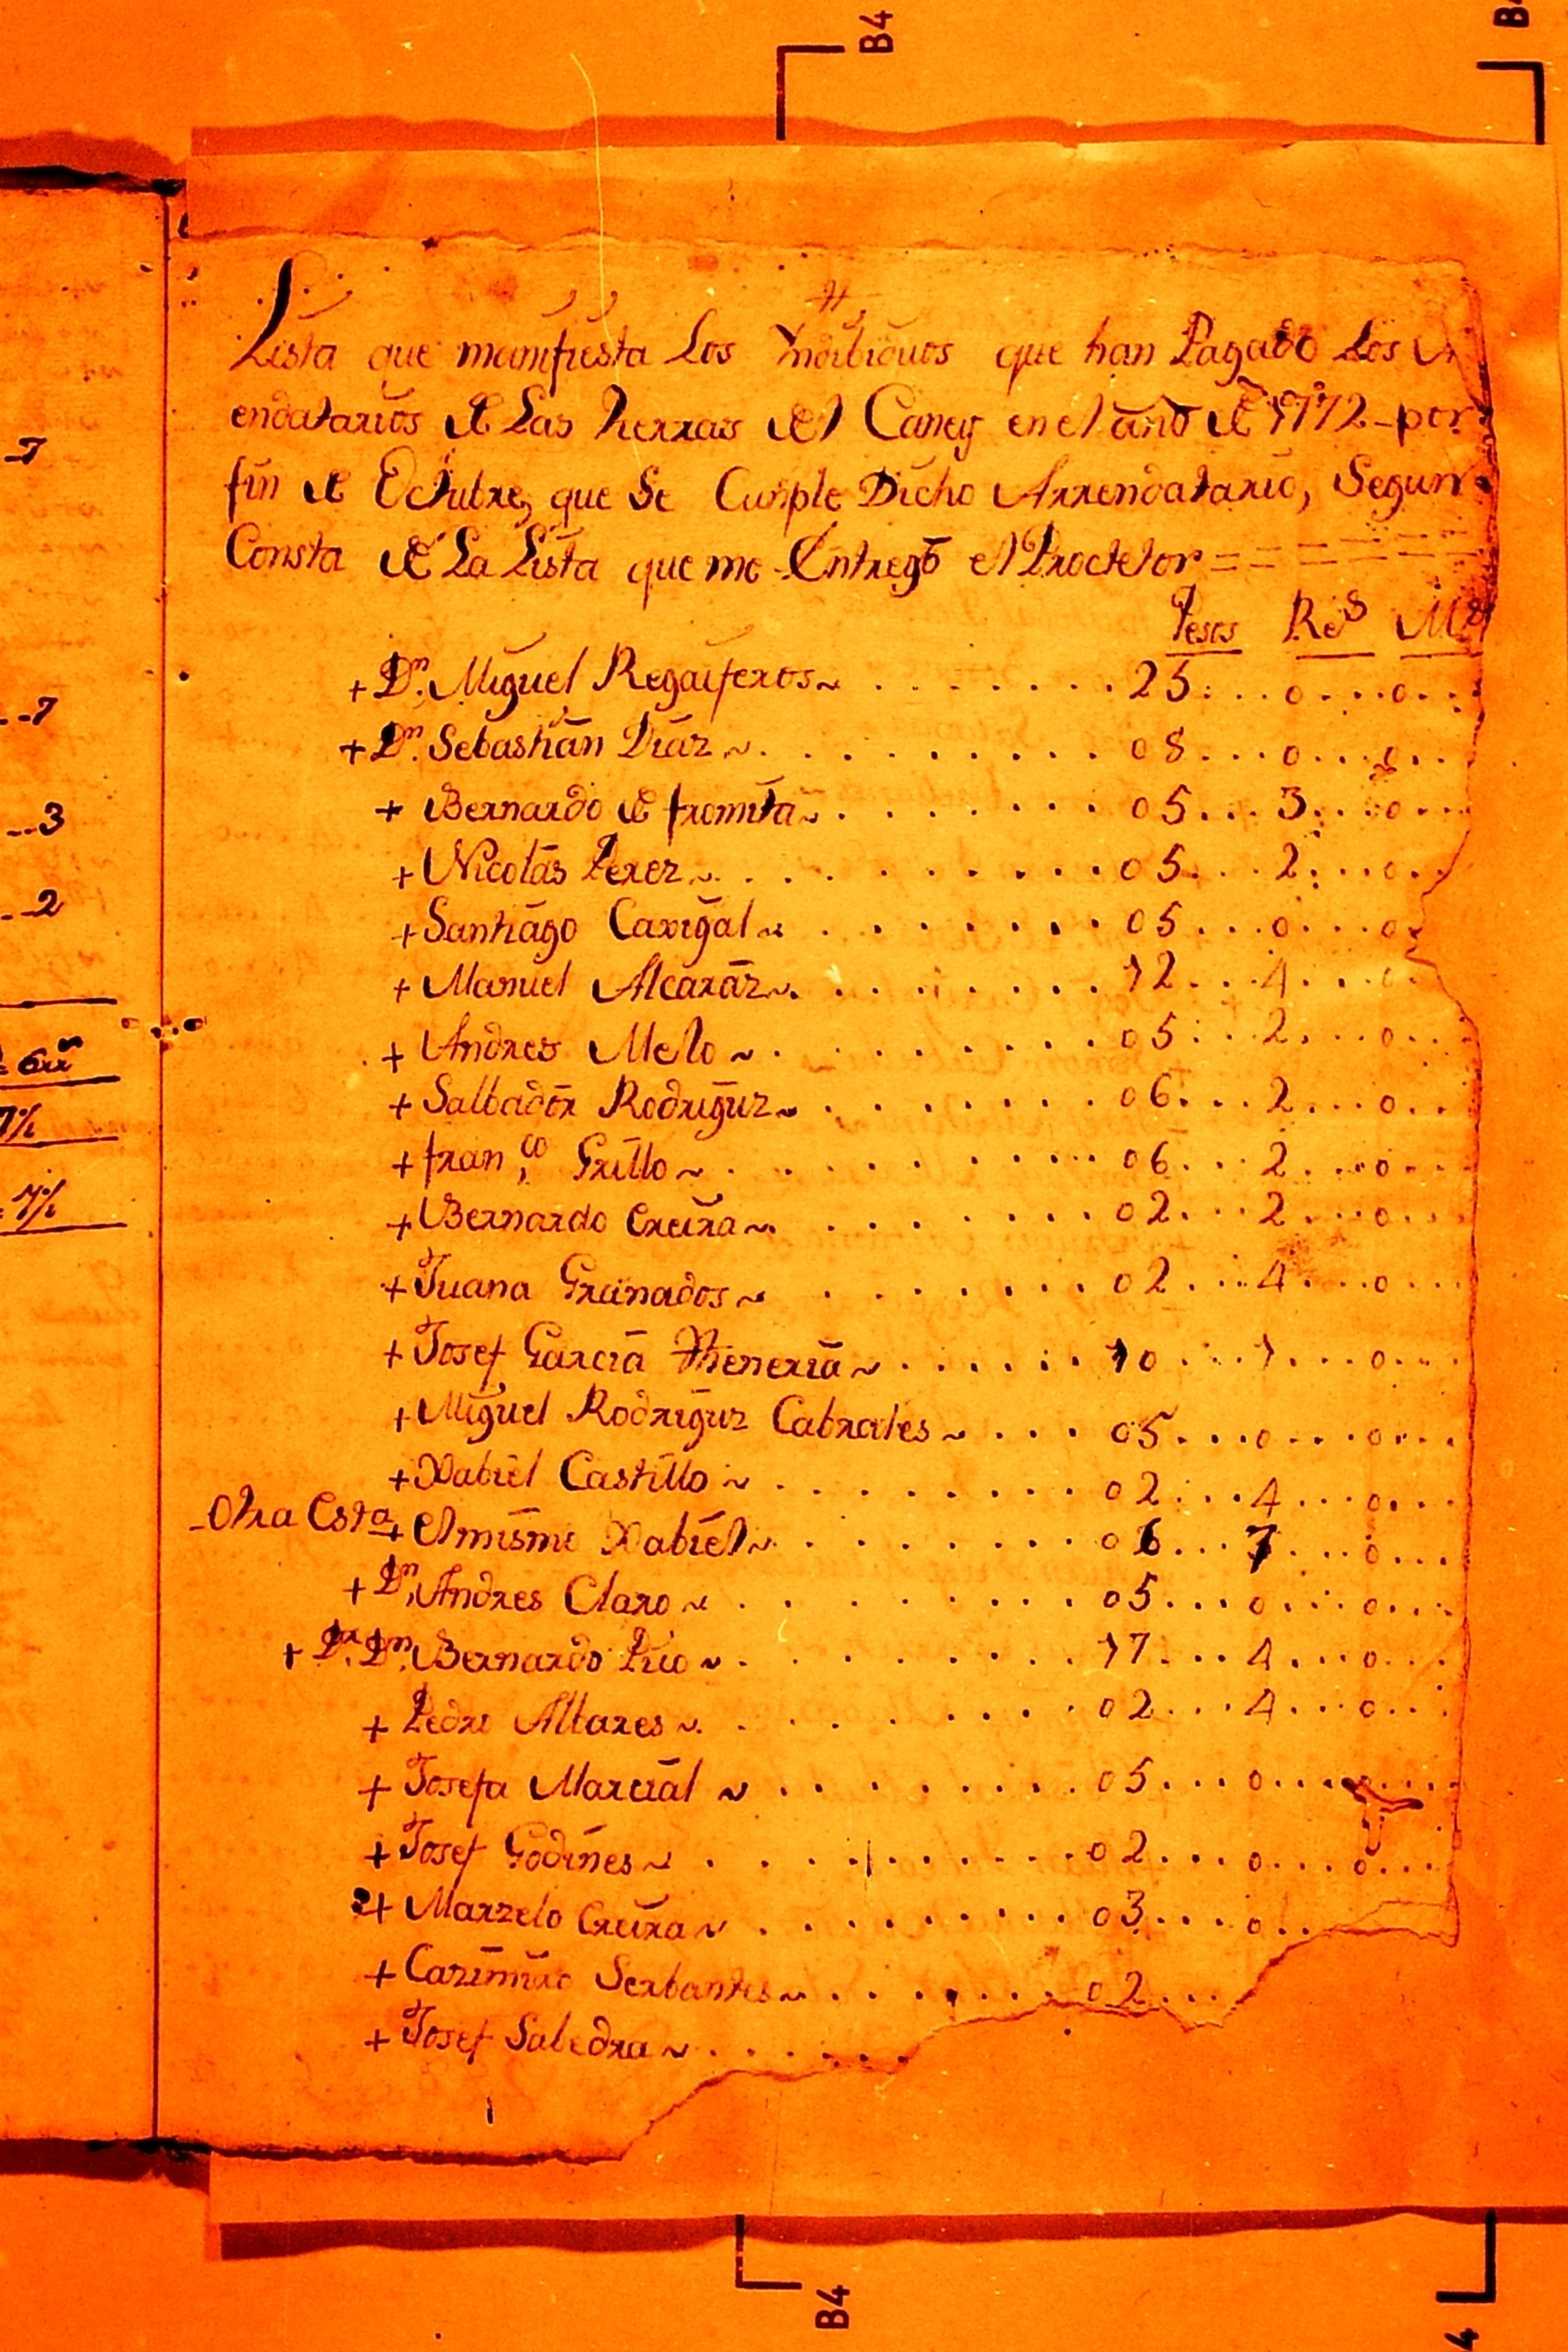 B4
B4
Lista que manifiesta Los Yndibiduos que han Pagado Los
endatarios de Las tierras del Caney en el año de 1772 - por
fin de Octubre, que Se Cumple Dicho Arrendatario, Segun
Consta de La Lista que me Entregó el Proctetor = = = = =
Pesos Res Ms
+ Dn. Miguel Regaiferos ~ . . . . . . . 25 . . . 0 . . . 0 . .
+ Dn. Sebastian Diaz ~ . . . . . . . . 08 . . . 0 . . . 0 . .
+ Bernardo de fromita ~ . . . . . . . 05 . . . 3 . . . 0 . . .
+ Nicolás Perez ~ . . . . . . . . . 05 . . . 2 . . . 0 . .
+ Santiago Caxigal ~ . . . . . . . 05 . . . 0 . . . 0
+ Manuel Alcaráz ~ . . . . . . . . 12 . . . 4 . . . 0
+ Andres Melo ~ . . . . . . . . . 05 . . . 2 . . . 0 . .
+ Salbadór Rodriguz ~ . . . . . . . 06 . . . 2 . . . 0 . .
+ franco Grillo ~ . . . . . . . . . 06 . . . 2 . . . 0 . .
+ Bernardo Creira ~ . . . . . . . 02 . . . 2 . . . 0 . .
+ Juana Granados ~ . . . . . . . 02 . . . 4 . . . 0 . . .
+ Josef Garcia Theneria ~ . . . . . . 10 . . . 1 . . . 0 . . .
+ Miguel Rodriguz Cabrales ~ . . . 05 . . . 0 . . . 0 . . .
+ Xabiel Castillo ~ . . . . . . . . 02 . . . 4 . . . 0 . . .
- Otra Esta + El mismo Xabiel ~ . . . . . . . . 06 . . . 7 . . . 0 . . .
+ Dn. Andres Claro ~ . . . . . . . . 05 . . . 0 . . . 0 . . .
+ Dr. Dn. Bernardo Pico ~ . . . . . . . . 17 . . . 4 . . . 0 . . .
+ Pedro Altares ~ . . . . . . . . 02 . . . 4 . . . 0 . . .
+ Josefa Marcial ~ . . . . . . . . 05 . . . 0 . . .
+ Josef Godines ~ . . . . . . . . . 02 . . . 0 . . . 0 . . .
+ Marzelo Creira ~ . . . . . . . . . 03 . . . 0 . .
+ Cazimiro Serbantes ~ . . . . . . . 02 . . .
+ Josef Sabedra ~ . . . . . .
B4
4
-7
- -7
- -3
- -2